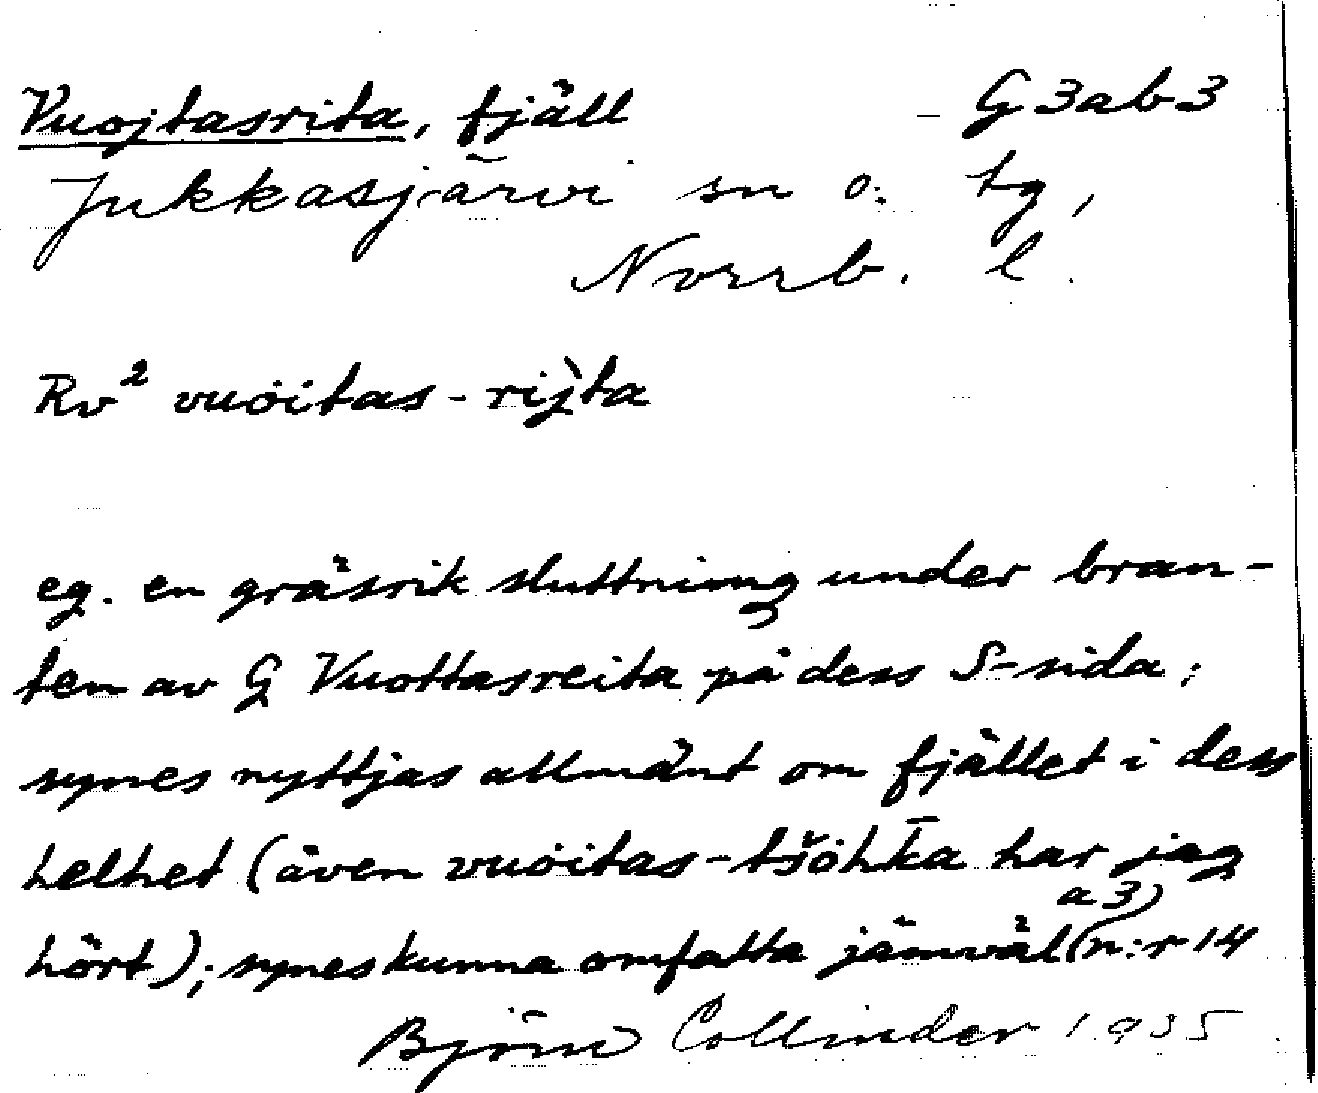 Vuojtasrita, fjäll G3ab3
Jukkasjärvi sn o. tg,
Norrb. l.
Rv² vuoitas-rijta
eg. en gräsrik sluttning under bran-
ten av G Vuottasreita på dess S-sida;
synes nyttjas allmänt om fjället i dess
helhet (även vuoitas-tšohka har jag
hört); synes kunna omfatta jämväl (n:r 14
a3)
Björn Collinder 1935